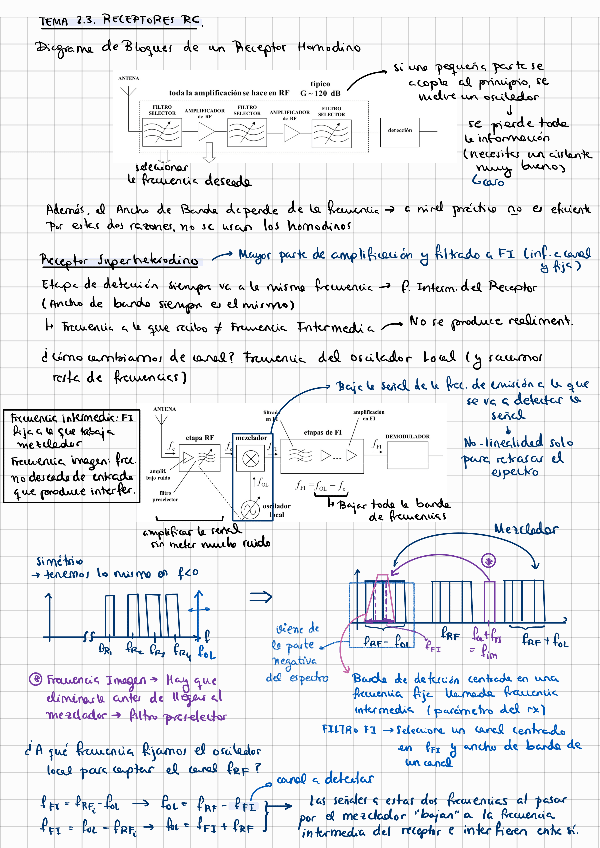 TEMA 2.3. RECEPTORES RC.
Diagrama de Bloques de un Receptor Homodino
si una pequeña parte se
acopla al principio, se
vuelve un oscilador
ANTENA
típico
toda la amplificación se hace en RF G ~ 120 dB
FILTRO SELECTOR
AMPLIFICADOR de RF
FILTRO SELECTOR
AMPLIFICADOR de RF
FILTRO SELECTOR
detección
se pierde toda
la información
(necesitas un aislante
muy bueno)
Caro
seleccionar
la frecuencia deseada
Además, el Ancho de Banda depende de la frecuencia → a nivel práctico no es eficiente
Por estas dos razones, no se usan los homodinos
Receptor Superheterodino → Mayor parte de amplificación y filtrado a FI (inf. a canal
y fija)
Etapa de detección siempre va a la misma frecuencia → f. Interm. del Receptor
(Ancho de banda siempre es el mismo)
↳ Frecuencia a la que recibo ≠ Frecuencia Intermedia → No se produce realiment.
¿Cómo cambiamos de canal? Frecuencia del oscilador Local (y sacamos
resta de frecuencias)
Baja la señal de la frec. de emisión a la que
se va a detectar la
señal
No-linealidad solo
para retrasar el
espectro
Frecuencia Intermedia: FI
fija a la que trabaja
mezclador
Frecuencia imagen: frec.
no deseada de entrada
que produce interfer.
ANTENA
etapa RF
mezclador
filtro en FI
amplificación en FI
etapas de FI
f FI
DEMODULADOR
amplif. bajo ruido
filtro preselector
f OL
f FI = f OL - f c
oscilador local
↳ Bajar toda la banda
de frecuencias
amplificar la señal
sin meter mucho ruido
Mezclador
Simétrico
→ tenemos lo mismo en f<0
⇒
*
fR1 fR2 fR3 fR4 fOL
f
viene de
la parte
negativa
del espectro
fRF - fOL
fFI
fRF
fOL + fFI
= fim
fRF + fOL
* Frecuencia Imagen → Hay que
eliminarla antes de llegar al
mezclador → filtro preselector
Banda de detección centrada en una
frecuencia fija llamada frecuencia
intermedia (parámetro del rx)
FILTRO FI → Selecciona un canal centrado
en fFI y ancho de banda de
un canal
¿A qué frecuencia fijamos el oscilador
local para captar el canal fRF?
canal a detectar
fFI = fRFc - fOL → fOL = fRF - fFI
fFI = fOL - fRFc → fOL = fFI + fRF
Las señales a estas dos frecuencias al pasar
por el mezclador "bajan" a la frecuencia
intermedia del receptor e interfieren entre sí.